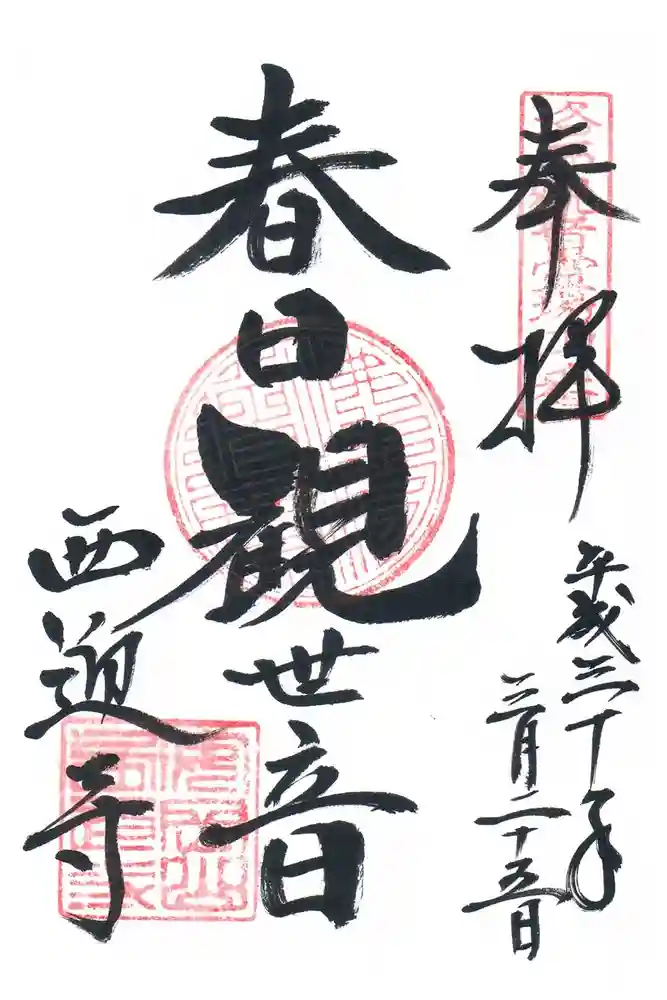 奉拝
平成三十年
三月二十五日
春日観世音
西迎寺